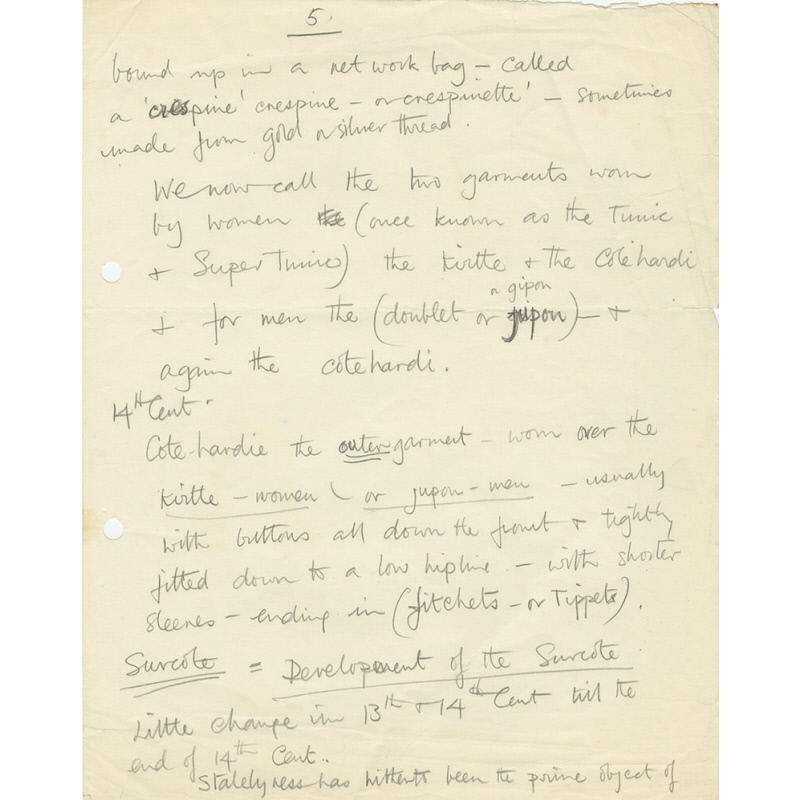 5.
bound up in a net work bag – called
a 'crespine' crespine – or crespinette' – sometimes
made from gold or silver thread.
We now call the two garments worn
by women the (once known as the Tunic
+ Super Tunic) the kirtle + the Cotehardi
or gipon
+ for men the (doublet or jupon) – +
again the cotehardi.
14th Cent.
Cote-hardie the outer garment – worn over the
kirtle – women or jupon – men – usually
with buttons all down the front + tightly
fitted down to a low hipline. – with shorter
sleeves – ending in (fitchets – or Tippets).
Surcote = Development of the Surcote
Little change in 13th + 14th Cent till the
end of 14th Cent..
Statelyness has hitherto been the prime object of